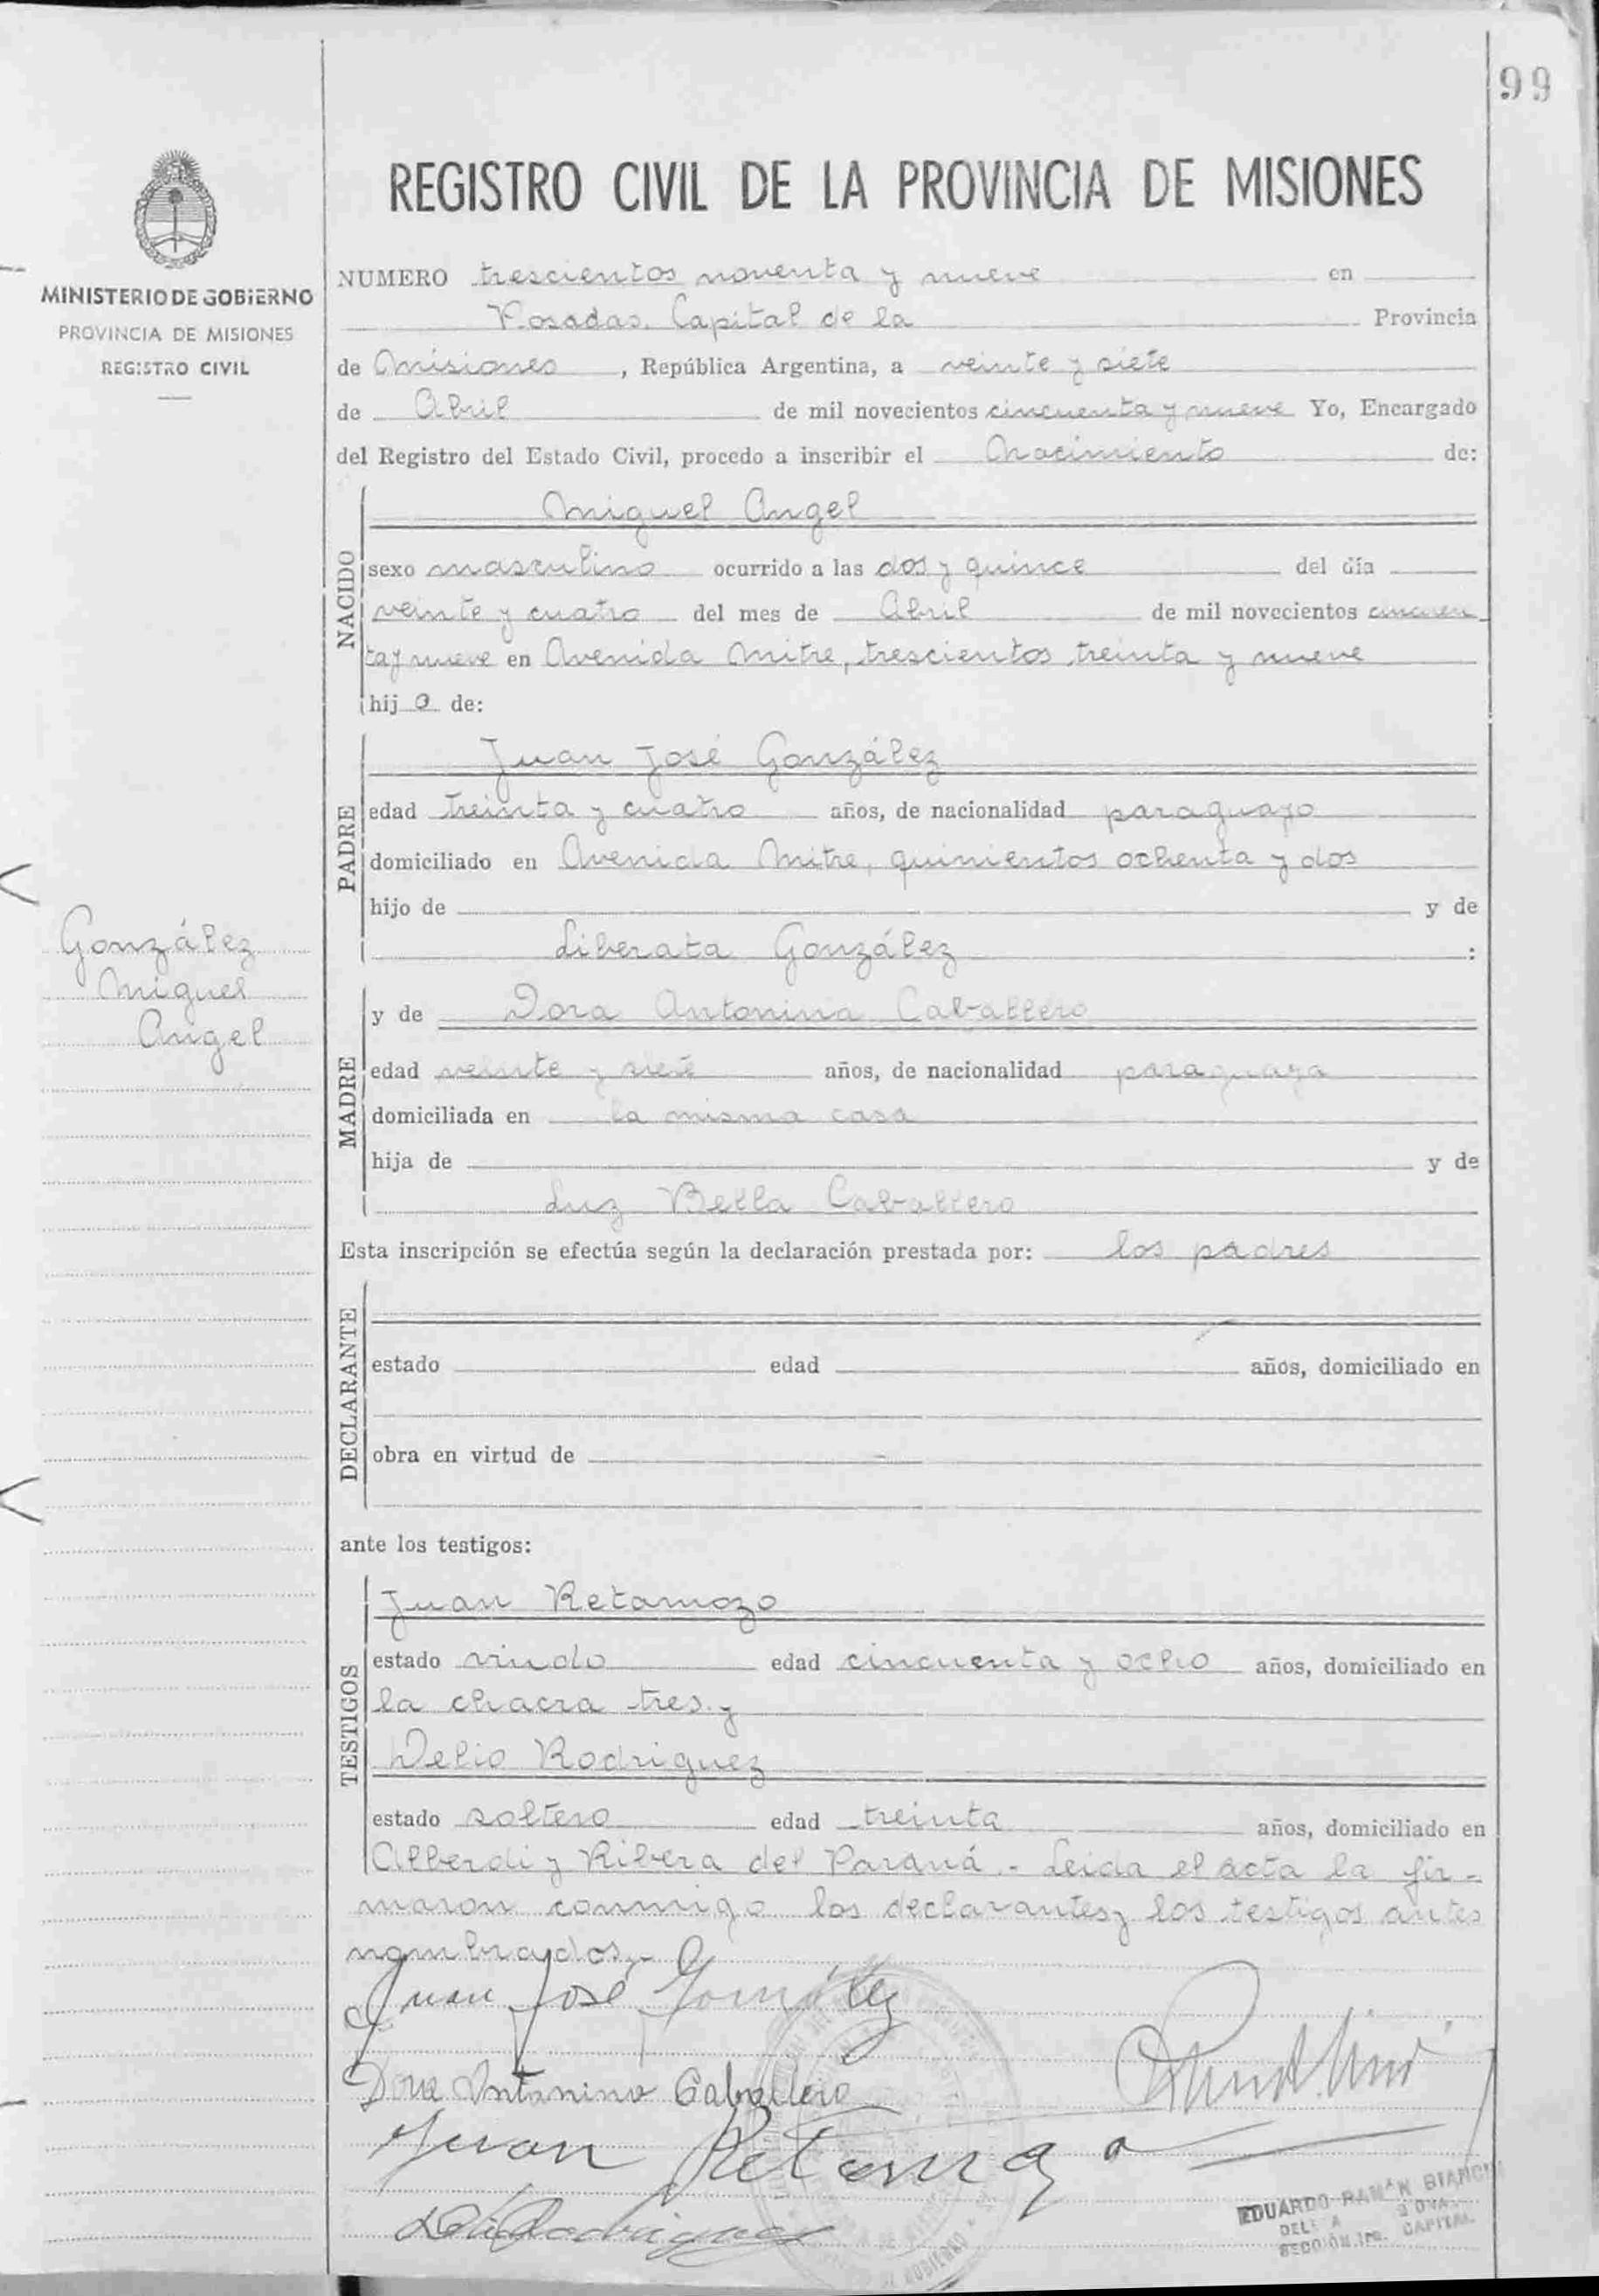 99
REGISTRO CIVIL DE LA PROVINCIA DE MISIONES
MINISTERIO DE GOBIERNO
PROVINCIA DE MISIONES
REGISTRO CIVIL
NUMERO trescientos noventa y nueve en
Posadas. Capital de la Provincia
de Misiones, República Argentina, a veinte y siete
de Abril de mil novecientos cincuenta y nueve Yo, Encargado
del Registro del Estado Civil, procedo a inscribir el Nacimiento de:
NACIDO
Miguel Angel
sexo masculino ocurrido a las dos y quince del día
veinte y cuatro del mes de Abril de mil novecientos cincuen
ta y nueve en Avenida Mitre, trescientos treinta y nueve
hijo de:
PADRE
Juan José González
edad treinta y cuatro años, de nacionalidad paraguayo
domiciliado en Avenida Mitre, quinientos ochenta y dos
hijo de y de
Liberata González :
González
Miguel
Angel
MADRE
y de Dora Antonina Caballero
edad veinte y siete años, de nacionalidad paraguaya
domiciliada en la misma casa
hija de y de
Luz Bella Caballero
Esta inscripción se efectúa según la declaración prestada por: los padres
DECLARANTE
estado edad años, domiciliado en
obra en virtud de
ante los testigos:
TESTIGOS
Juan Retamozo
estado viudo edad cincuenta y ocho años, domiciliado en
la chacra tres y
Delio Rodriguez
estado soltero edad treinta años, domiciliado en
Alberdi y Ribera del Paraná.- Leida el acta la fir-
maron conmigo los declarantes y los testigos antes
nombrados.-
Juan José González
Dora Antonina Caballero
Juan Retamozo
Rodriguez
EDUARDO RAMÓN BIANCHI
SECCIÓN 1ra. CAPITAL